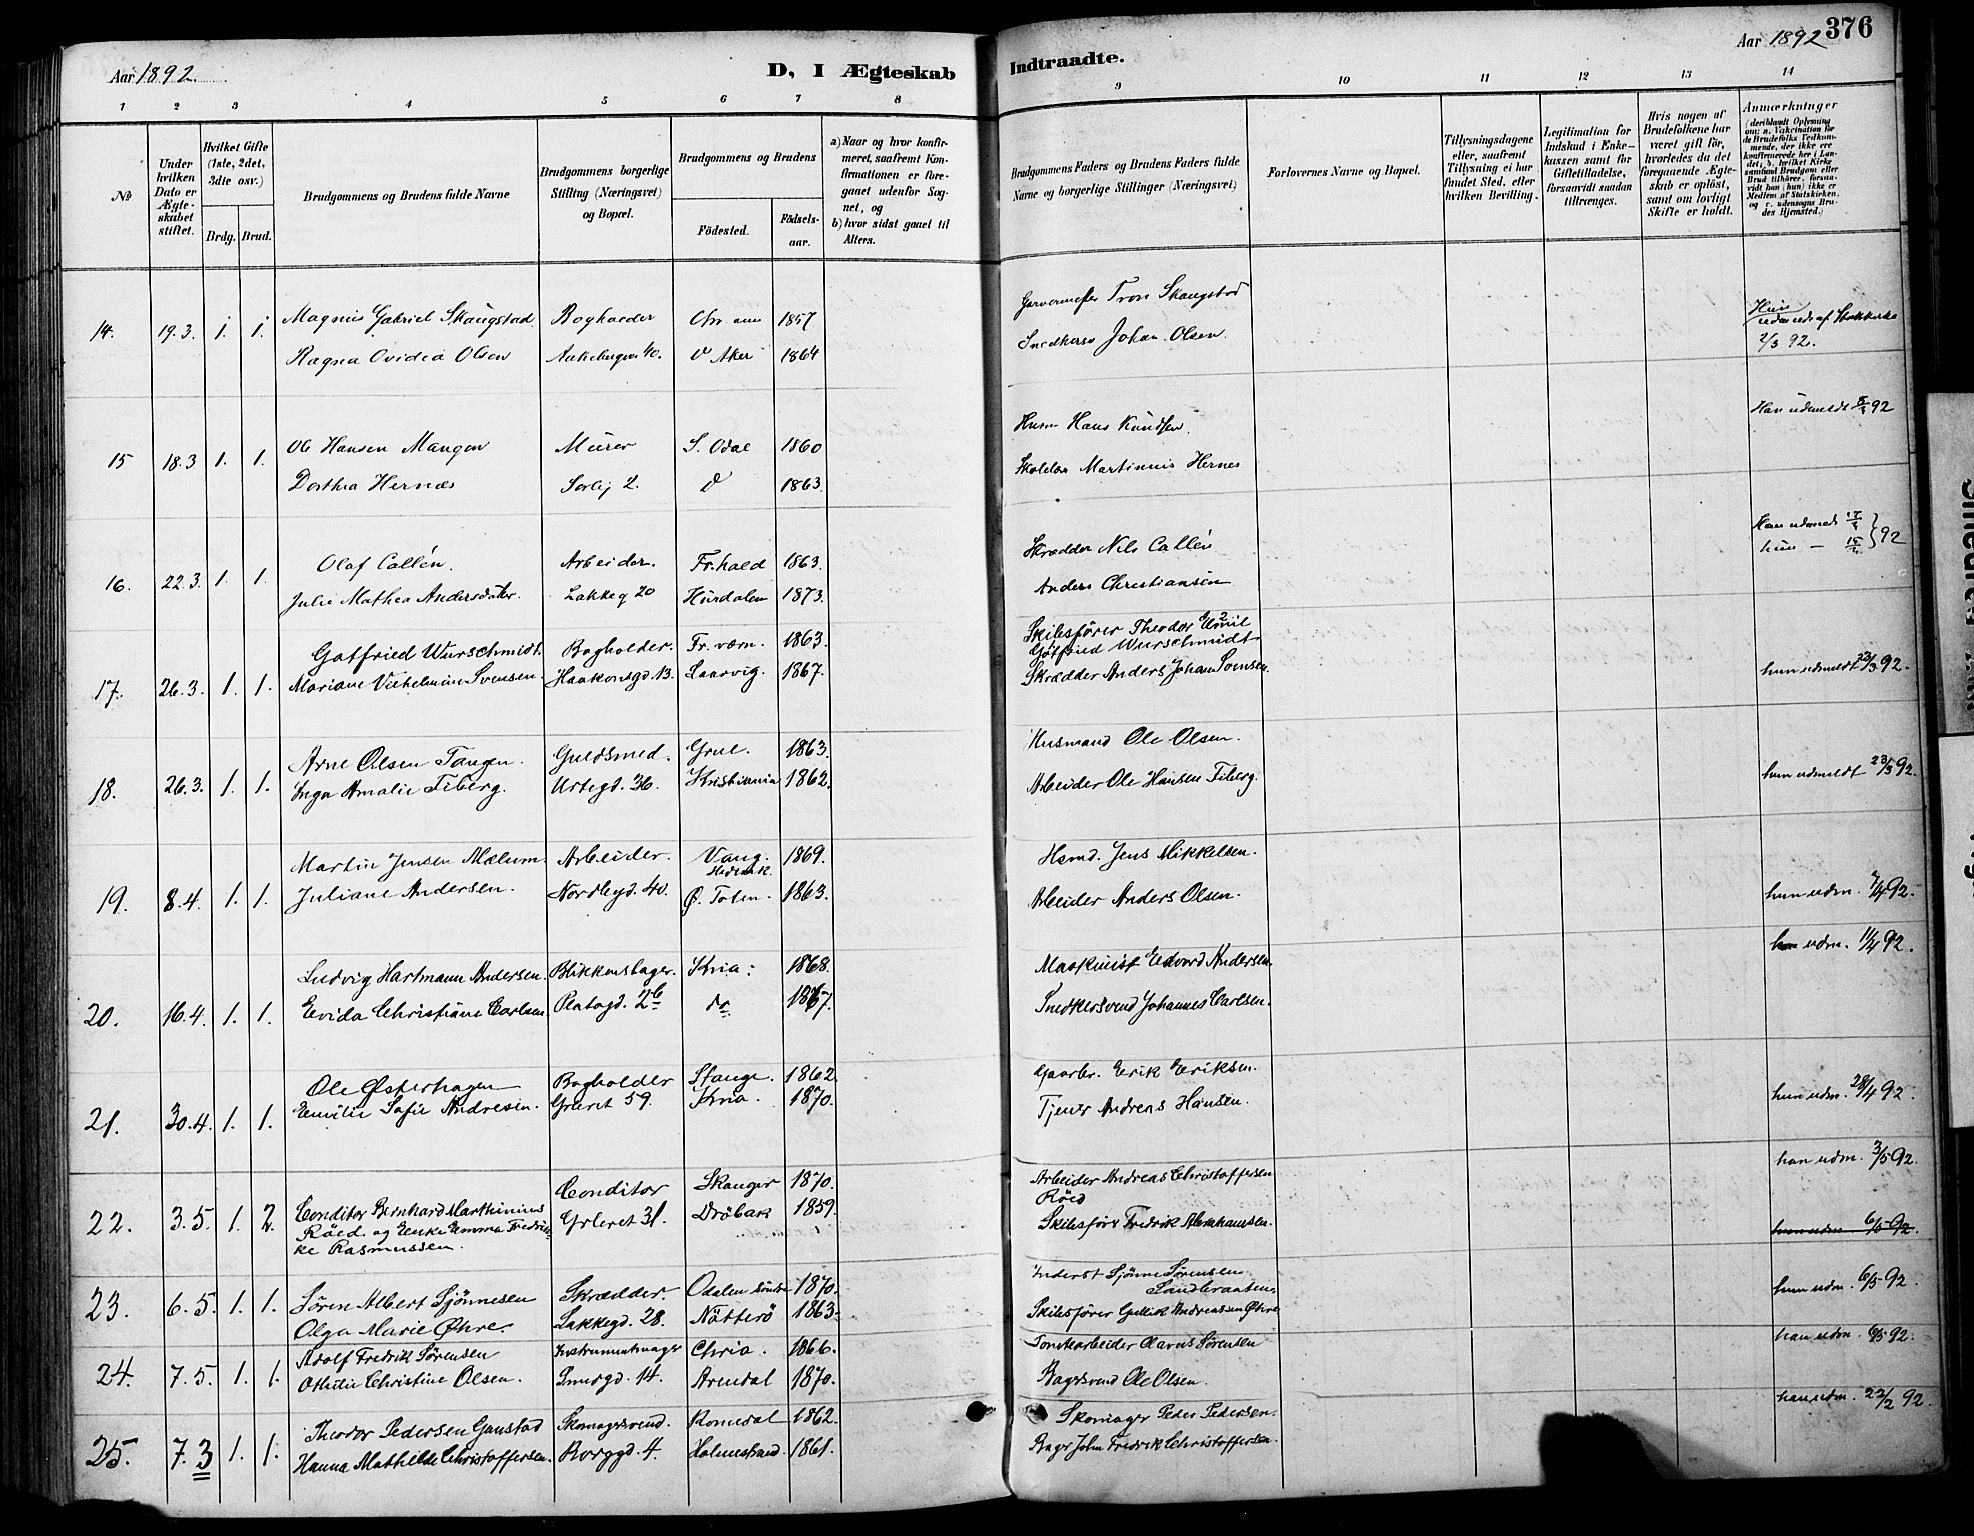 Aar 1892.
D, I Ægteskab
Indtraadte.
Aar 1892
376
1 2 3 4 5 6 7 8
9 10 11 12 13 14
No
Under hvilken Dato er Ægteskabet stiftet.
Hvilket Gifte (1ste, 2det, 3die osv.)
Brdg. Brud.
Brudgommens og Brudens fulde Navne
Brudgommens borgerlige Stilling (Næringsvei) og Bopæl.
Brudgommens og Brudens
Födested.
Födsels-aar.
a) Naar og hvor konfirmeret, saafremt Konfirmationen er foregaaet udenfor Sognet, og
b) hvor sidst gaaet til Alters.
Brudgommens Faders og Brudens Faders fulde Navne og borgerlige Stillinger (Næringsvei)
Forlovernes Navne og Bopæl.
Tillysningsdagene eller, saafremt Tillysning ei har fundet Sted, efter hvilken Bevilling.
Legitimation for Indskud i Enkekassen samt for Giftetilladelse, forsaavidt saadan tiltrænges.
Hvis nogen af Brudefolkene har været gift för, hvorledes da det foregaaende Ægteskab er oplöst, samt om lovligt Skifte er holdt.
Anmærkninger (deriblandt Oplysning om: a. Vakcination for de Brudefolks Vedkommende, der ikke ere konfirmerede her i Landet; b. hvilket Kirkesamfund Brudgom eller Brud tilhörer, forsaavidt han (hun) ikke er Medlem af Statskirken, og c. udensogns Brudes Hjemsted.)
14. 19.3. 1. 1. Magnus Gabriel Skaugstad Bogholder 1857 Garvermester Tron Skaugstad
Ragna Ovidia Olsen Aakebergvn 40. V Aker 1864 Johan Olsen.
Hun udmeldt af 2/3 92.
15 18.3 1. 1. Ole Hansen Mangen Murer S. Odal 1860 Husm Hans Knudsen. Han udmeldt 92
Dorthea Hernæs Sorlig 2. 1863. Martinius Hernes
16. 22.3. 1. 1. Olaf Callén. Arbeider. Fr.hald 1863. Skrædder Nils Callén
Julie Mathea Andersdatter. Lakkeg 20 Hurdalen 1873. Anders Christiansen
hun — 92
17. 26.3. 1. 1. Gotfried Wurschmidt. Bogholder. Fr. værn. 1863. Skibsfører Theodor Emil Gotfried Wurschmidt
Mariane Vilhelmine Svensen. Haakonsgd. 13. Laurvig. 1867. Skrædder Anders Johan Svensen. hun udmeldt 22/3 92.
18. 26.3. 1. 1. Arne Olsen Tangen. Guldsmed. Grue. 1863. Husmand Ole Olsen.
Inga Amalie Fiberg. Urtegd. 36. Kristiania 1862. Arbeider Ole Hansen Fiberg. hun udmeldt 23/3 92.
19. 8.4. 1. 1. Martin Jensen Mælum. Arbeider. Vang. Hedmark. 1869. Hsmd. Jens Mikkelsen.
Juliane Andersen. Nordbygd. 40. Ø. Toten. 1863. Arbeider Anders Olsen. hun udm. 7/4 92.
20. 16.4. 1. 1. Ludvig Hartmann Andersen. Blikkenslager. Kria. 1868. Maskinist Edvard Andersen. udm. 11/4 92.
Evida Christiane Carlsen. Platogd. 2b do 1867. Snedkersvend Johannes Carlsen.
21. 30.4. 1. 1. Ole Østerhagen Bogholder Stange. 1862. Gaarbr. Erik Eriksen.
Emilie Sofie Andresen. Grleret 59. Kria. 1870. Tjener Andreas Hansen. hun udm. 28/4 92.
22. 3.5. 1. 2. Conditor Bernhard Marthinius Röed og Enke Emma Fredrikke Rasmussen. Conditor Grleret 31. Skauger 1870. Arbeider Andreas Christoffersen Röed han udm. 3/5 92.
Dröbak 1859. Skibsförer Fredrik Abrahamsen. hun udm 6/5 92.
23. 6.5. 1. 1. Sören Albert Sjönnesen Skrædder. Odalen söndre 1870. Inderst Sjönne Sörensen Sandbraaten.
Olga Marie Øhre. Lakkegd. 28. Nötterö 1863. Skibsförer Gullik Andreassen Øhre hun udm. 6/5 92.
24. 7.5. 1. 1. Adolf Fredrik Sörensen Instrumentmager Chria. 1866. Tomtearbeider Olavus Sörensen han udm. 6/5 92.
Othilie Christine Olsen. Smedgd. 14. Arendal 1870. Bagersvend Ole Olsen.
25. 7.3 1. 1. Theodor Pedersen Gaustad Skomagersvend. Romedal 1862. Skomager Peder Pedersen. han udm. 22/2 92.
Hanna Mathilde Christoffersen. Borggd. 4. Holmestrand. 1861. Bager John Fredrik Christoffersen.